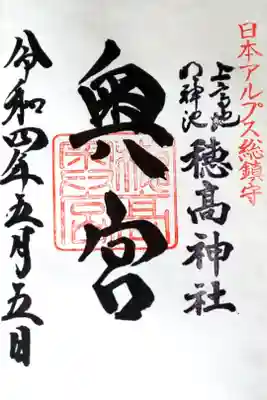 日本アルプス総鎮守
上高地
明神池
穂高神社
奥宮
令和四年五月五日